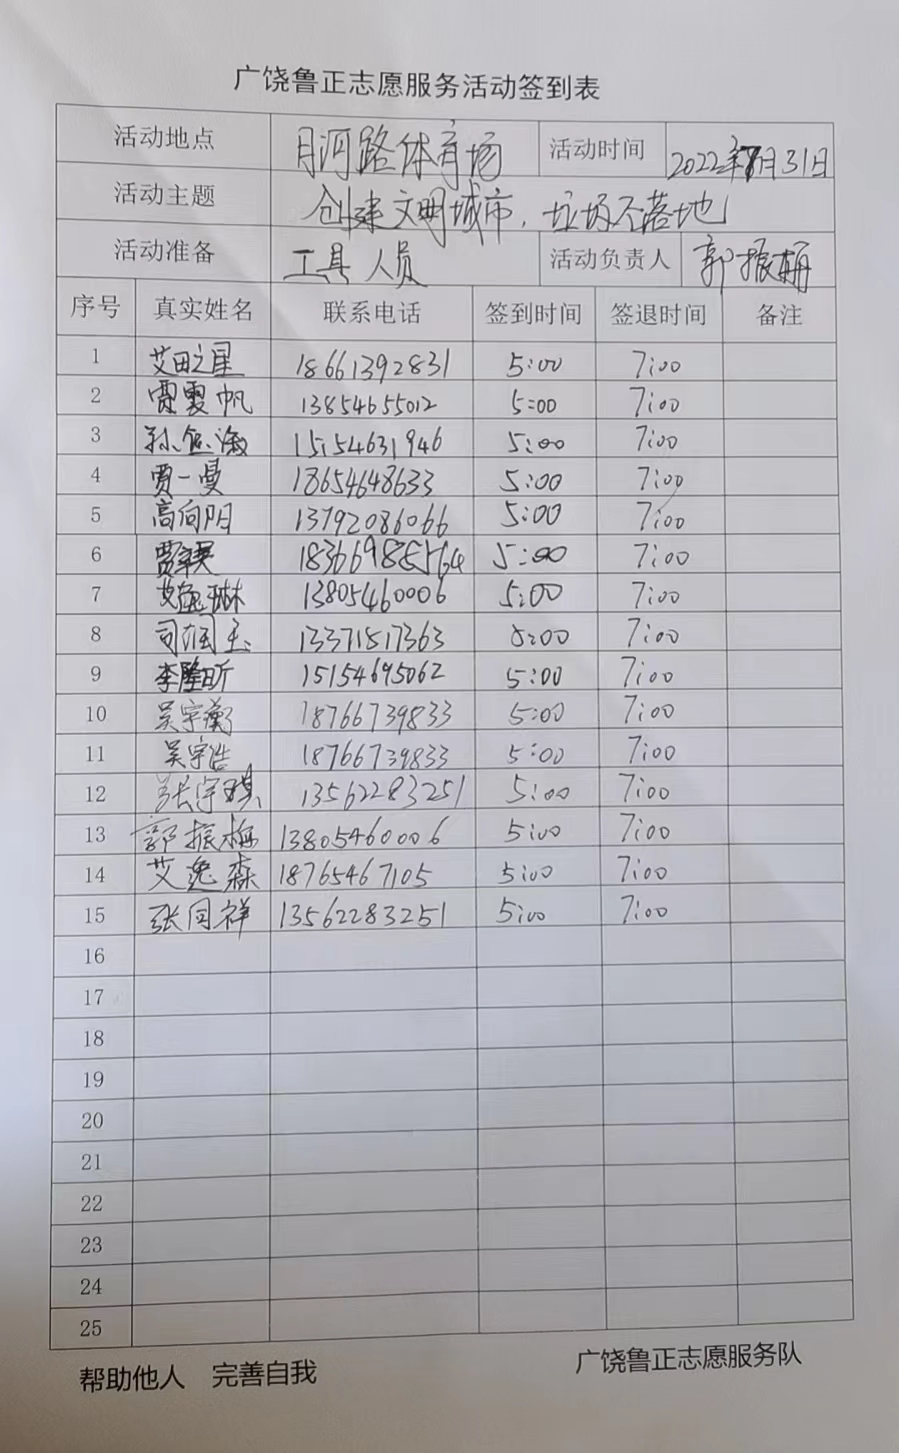 广饶鲁正志愿服务活动签到表
活动地点 月河路体育场 活动时间 2022年7月31日
活动主题 创建文明城市，垃圾不落地
活动准备 工具 人员 活动负责人 郭振梅
序号 真实姓名 联系电话 签到时间 签退时间 备注
1 艾田之星 18661392831 5:00 7:00
2 贾雯帆 13854655012 5:00 7:00
3 15154631946 5:00 7:00
4 贾一曼 18654648633 5:00 7:00
5 高向阳 13792086066 5:00 7:00
6 5:00 7:00
7 艾逸琳 13805460006 5:00 7:00
8 13371517363 5:00 7:00
9 李隆昕 15154695062 5:00 7:00
10 吴宇衡 18766739833 5:00 7:00
11 吴宇浩 18766739833 5:00 7:00
12 张宇琪 13562283251 5:00 7:00
13 郭振梅 13805460006 5:00 7:00
14 艾逸森 18765467105 5:00 7:00
15 张同祥 13562283251 5:00 7:00
16
17
18
19
20
21
22
23
24
25
帮助他人 完善自我 广饶鲁正志愿服务队